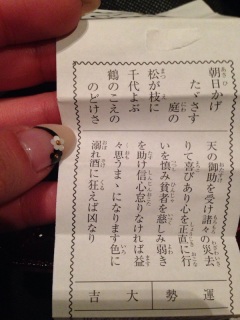 朝日かげ
たゞさす 庭の
松が枝に
千代よぶ
鶴のこえの
のどけさ
天の御助を受け諸々の災去
りて喜びあり心を正直に行
いを慎み貧者を慈しみ弱き
を助け信心怠りなければ益
々思うまゝになります色に
溺れ酒に狂えば凶なり
運勢
大吉